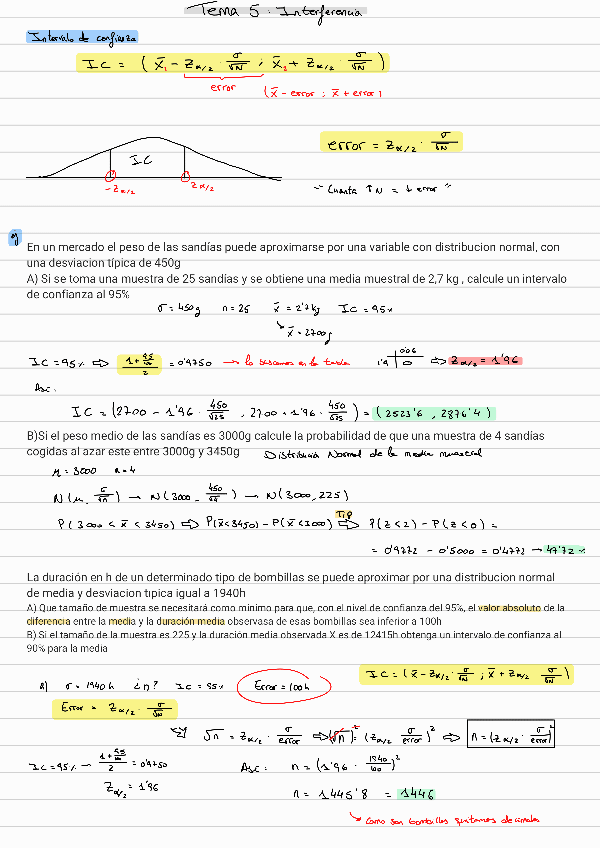 Tema 5. Interferencia
Intervalo de confianza
IC = ( x̄ - Zα/2 · σ/√N ; x̄ + Zα/2 · σ/√N )
error
(x̄ - error ; x̄ + error)
IC
-Zα/2
Zα/2
error = Zα/2 · σ/√N
"Cuanta ↑N = ↓ error"
ej
En un mercado el peso de las sandías puede aproximarse por una variable con distribucion normal, con
una desviacion típica de 450g
A) Si se toma una muestra de 25 sandías y se obtiene una media muestral de 2,7 kg , calcule un intervalo
de confianza al 95%
σ = 450g n = 25 x̄ = 2'7kg IC = 95%
↳ x̄ = 2700g
IC = 95% ⇒ (1 + 95/100)/2 = 0'9750 → lo buscamos en la tabla 1'9 0'06 ⇒ Zα/2 = 1'96
Asi:
IC = (2700 - 1'96 · 450/√25 , 2700 + 1'96 · 450/√25) = (2523'6 , 2876'4)
B)Si el peso medio de las sandías es 3000g calcule la probabilidad de que una muestra de 4 sandías
cogidas al azar este entre 3000g y 3450g
Distribución Normal de la media muestral
μ = 3000 n = 4
N(μ, σ/√n) → N(3000, 450/√4) → N(3000, 225)
P(3000 < x̄ < 3450) ⇒ P(x̄ < 3450) - P(x̄ < 3000) Tip ⇒ P(Z < 2) - P(Z < 0) =
= 0'9772 - 0'5000 = 0'4772 → 47'72%
La duración en h de un determinado tipo de bombillas se puede aproximar por una distribucion normal
de media y desviacion tipica igual a 1940h
A) Que tamaño de muestra se necesitará como minimo para que, con el nivel de confianza del 95%, el valor absoluto de la
diferencia entre la media y la duración media observasa de esas bombillas sea inferior a 100h
B) Si el tamaño de la muestra es 225 y la duración media observada X es de 12415h obtenga un intervalo de confianza al
90% para la media
IC = (x̄ - Zα/2 · σ/√N ; x̄ + Zα/2 · σ/√N)
a) σ = 1940h ¿n? IC = 95% Error = 100h
Error = Zα/2 · σ/√N
√n = Zα/2 · σ/error ⇒ (√n)² = (Zα/2 · σ/error)² ⇒ n = (Zα/2 · σ/error)²
IC = 95% → (1 + 95/100)/2 = 0'9750
Asi: n = (1'96 · 1940/100)²
Zα/2 = 1'96
n = 1445'8 = 1446
↳ Como son bombillas quitamos decimales